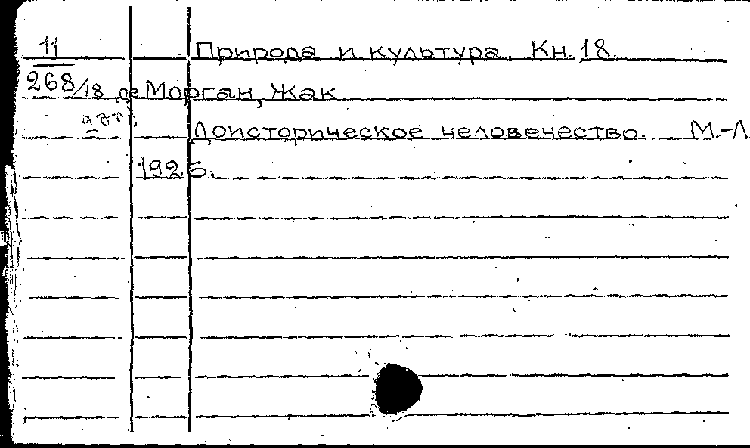 11 Природа и культура. Кн. 18.
268/18 де Морган, Жак
Доисторическое человечество. М.-Л
1926.